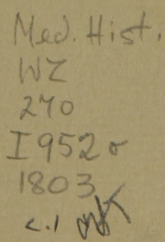 Med. Hist.
WZ
270
I952r
1803
c.1